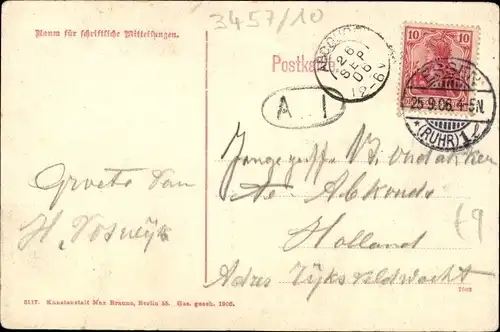 3457/10
Raum für schriftliche Mitteilungen.
Postkarte
ABCOUDE
26 SEP 06
10
10
ESSEN
25.9.06. 4-5N.
*(RUHR)1
A 1
te Abkoude
Holland
Adres Rijksveldwacht
Groete van
H.
£9
5117. Kunstanstalt Max Braune, Berlin 55. Ges. gesch. 1906.